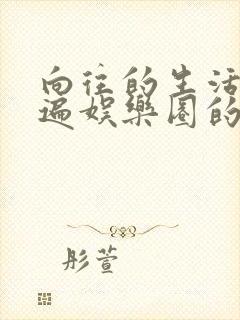 向往的生活
遍娱乐圈的
彤萱